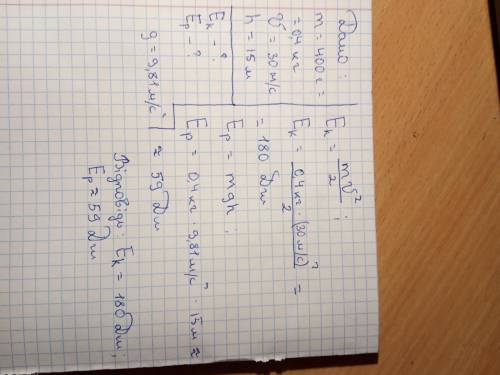 Дано:
m = 400 г =
= 0,4 кг
v = 30 м/с
h = 15 м
Eк - ?
Ep - ?
g = 9,81 м/с²
Eк = mv²/2 ;
Eк = 0,4 кг · (30 м/с)²/2 =
= 180 Дж
Ep = mgh ;
Ep = 0,4 кг · 9,81 м/с² · 15 м ≈
≈ 59 Дж
Відповідь: Eк = 180 Дж ;
Ep ≈ 59 Дж